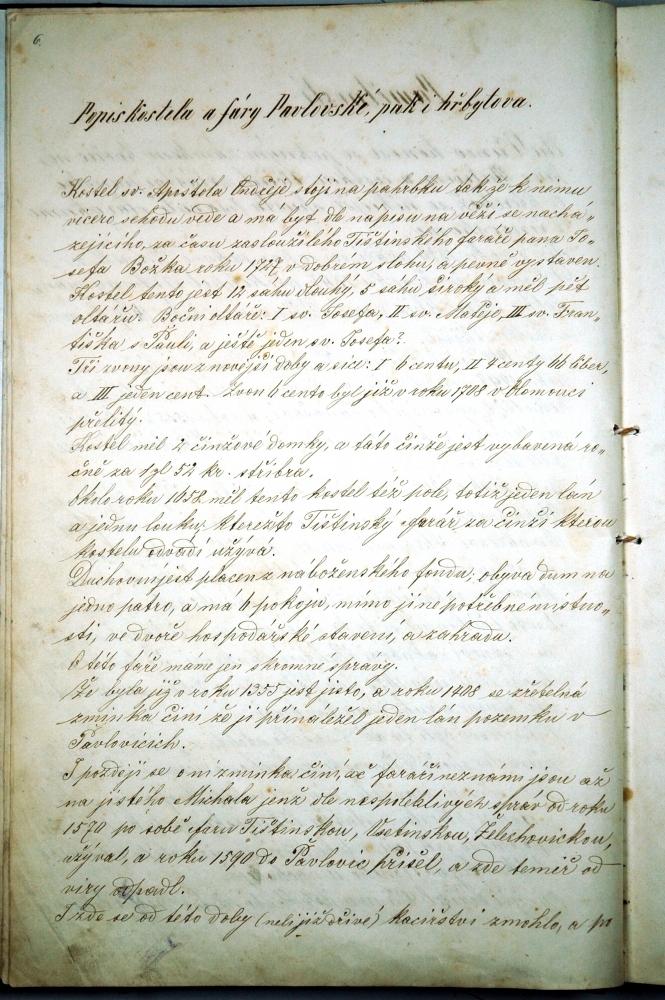 6.
Popis kostela a fáry Pavlovské, pak i hřbytova.
Kostel sv. Apoštola Ondřeje stojí na pahrbku tak že k němu
vícero schodů vede a má byt dle napisu na věži se nachá-
zejícího, za času zasloužilého Tištinského faráře pana Jo-
sefa Božka roku 1727 v dobrém slohu, a pevně vystaven.
Kostel tento jest 12 sáhu dlouhý, 5 sahu široky a měl pět
oltařu. Boční oltáře: I sv. Josefa, II sv. Matěje, III sv. Fran-
tiška s Pauli, a ještě jeden sv. Josefa?
Tři zvony jsou z novější doby a sice: I 6 centu, II 4 centy 66 liber,
a III jeden cent. Zvon 6 cento byl již v roku 1708 v Olomouci
přelitý.
Kostel měl 2 činžové domky, a táto činže jest vybavená ro-
čně za 1 zl 52 kr. stříbra.
Okolo roku 1058 měl tento kostel též pole, totiž jeden lán
a jednu louku, kterežto Tištinský farář za činži kterou
kostelu odvádí užývá.
Duchovný jest placen z náboženského fondu; obýva dum na
jedno patro, a má 6 pokoju, mimo jiné potřebné místno-
sti, ve dvoře hospodářské stavení, a zahradu.
O této fáře máme jen skromné správy.
Že byla již v roku 1355 jest jisto, a roku 1408 se zřetelná
zminka činí že ji přináležel jeden lán pozemku v
Pavlovicích.
I později se o ní zminka činí, ač faráři neznámi jsou až
na jistého Michala jenž dle nespolehlivých správ od roku
1570 po sobě faru Tištinskou, Vsetinskou, Želechovickou,
užýval, a roku 1590 do Pavlovic přišel, a zde teměř od
viry odpadl.
I zde se od této doby (neli již dřivé) kacířstvi zmohlo, a po